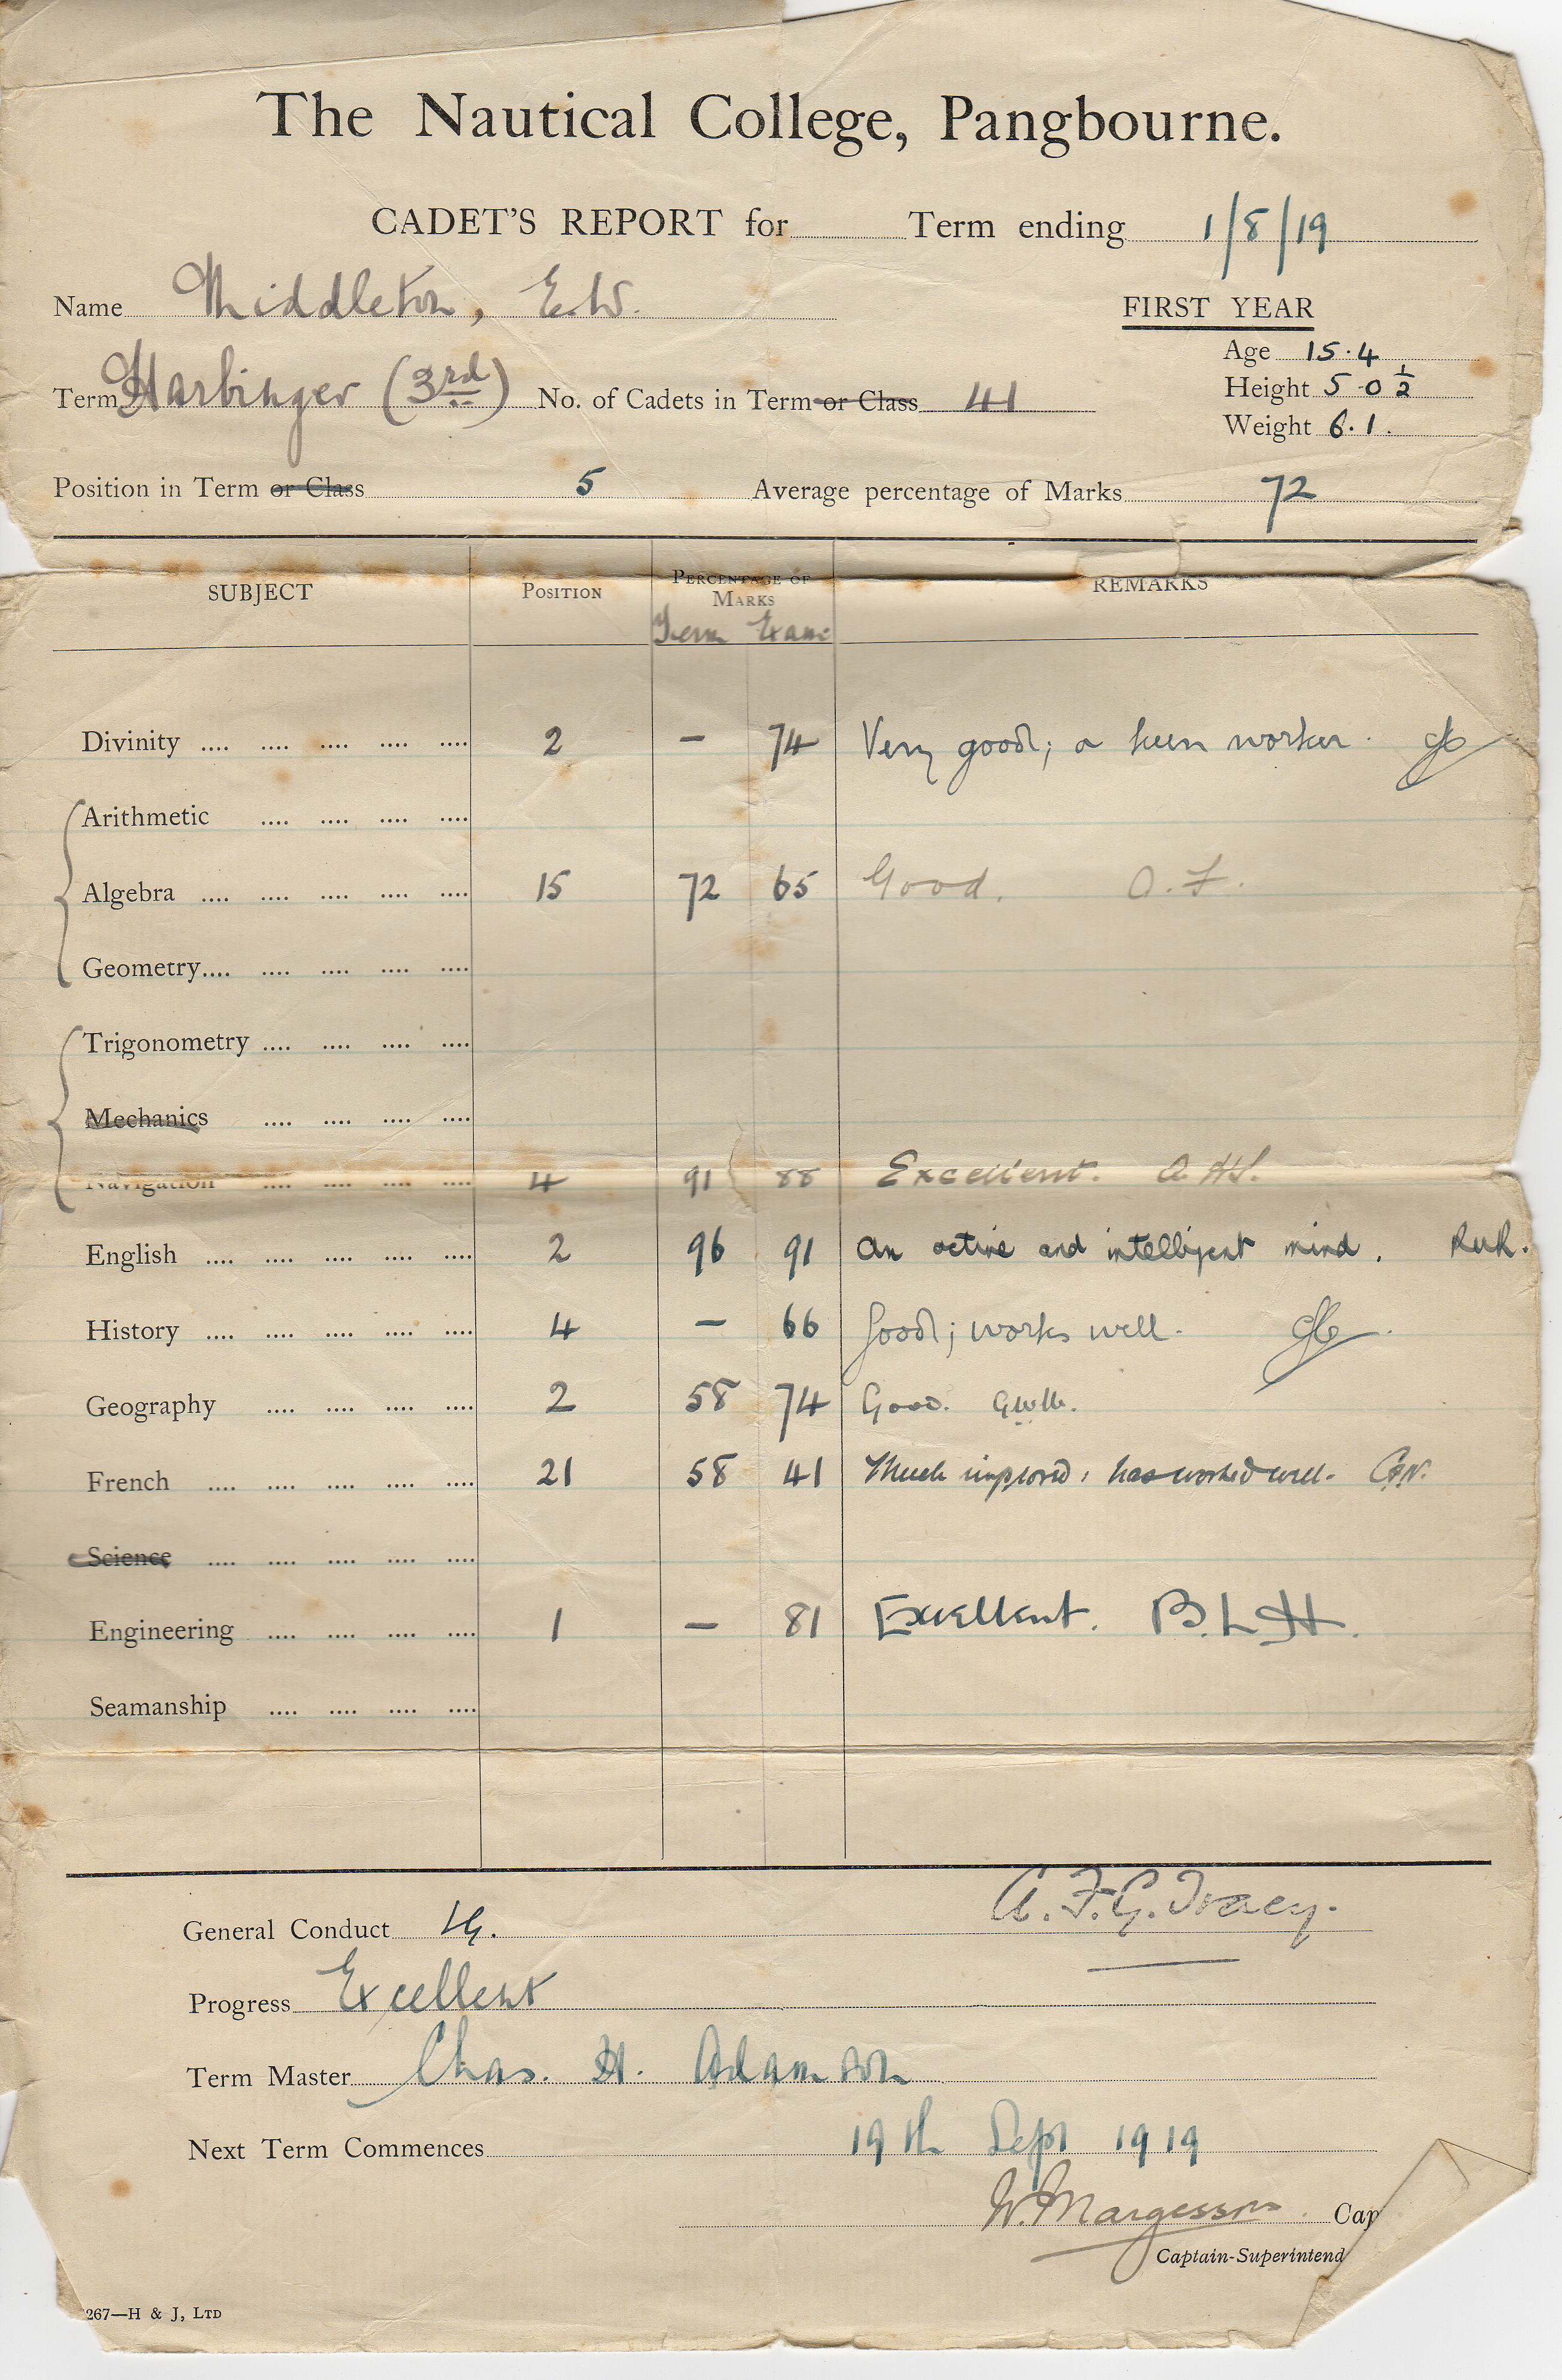 The Nautical College, Pangbourne.
CADET'S REPORT for Term ending 1/8/19
Name Middleton, E.W.
FIRST YEAR
Age 15.4
Term Harbinger (3rd) No. of Cadets in Term or Class 41
Height 5 0 1/2
Weight 6.1.
Position in Term or Class 5 Average percentage of Marks 72
SUBJECT POSITION PERCENTAGE OF MARKS REMARKS
Term Exam
Divinity .... .... .... .... .... 2 – 74 Very good; a keen worker.
Arithmetic .... .... .... ....
Algebra .... .... .... .... .... 15 72 65 Good. O.F.
Geometry.... .... .... .... ....
Trigonometry .... .... .... ....
Mechanics .... .... .... ....
Navigation .... .... .... .... 4 91 88 Excellent.
English .... .... .... .... .... 2 96 91 An active and intelligent mind.
History .... .... .... .... .... 4 – 66 Good; works well.
Geography .... .... .... .... 2 58 74 Good.
French .... .... .... .... .... 21 58 41 Much improved; has worked well.
Science .... .... .... .... ....
Engineering .... .... .... .... 1 – 81 Excellent. B.L.H.
Seamanship .... .... .... ....
A.F.G. Tracy.
General Conduct V.G.
Progress Excellent
Term Master Chas. H. Adamson
Next Term Commences 19th Sept 1919
W. Margesson Cap
Captain-Superintend
267—H & J, LTD